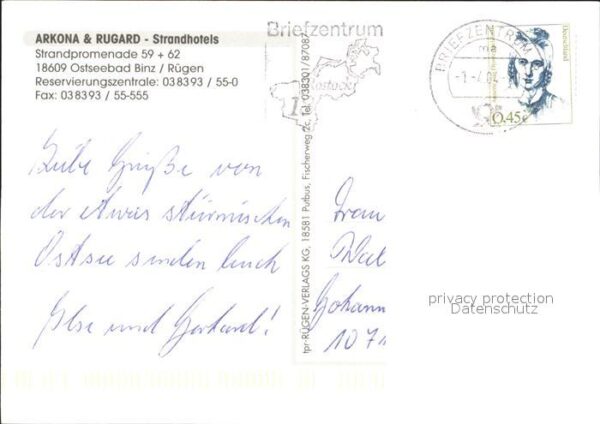 ARKONA & RUGARD - Strandhotels
Strandpromenade 59 + 62
18609 Ostseebad Binz / Rügen
Reservierungszentrale: 038393 / 55-0
Fax: 038393 / 55-555
Briefzentrum
BRIEFZENTRUM
ma
Deutschland
0,45€
Liebe Grüße von
der etwas stürmischen
Ostsee senden Euch
Ilse und Gerhard!
tpr-RÜGEN-VERLAGS KG, 18581 Putbus, Fischerweg 2c, Tel. 038301/8708
Frau
Johann
107
privacy protection
Datenschutz